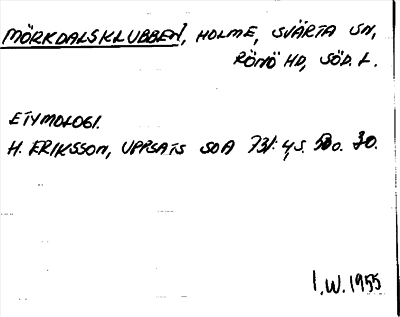 MÖRKDALSKLUBBEN, HOLME, SVÄRTA SN,
RÖNÖ HD, SÖD. L.
ETYMOLOGI.
H. ERIKSSON, UPPSATS SOA 73: 4, S. O. 30.
I.W. 1955